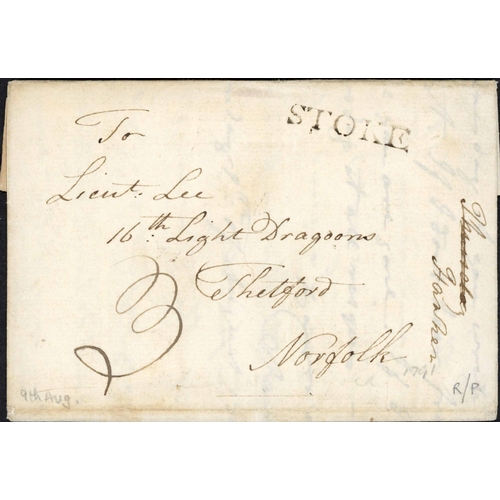 STOKE
To
Lieut. Lee
16th. Light Dragoons
Thetford
Norfolk
3
9th Aug.
R/P